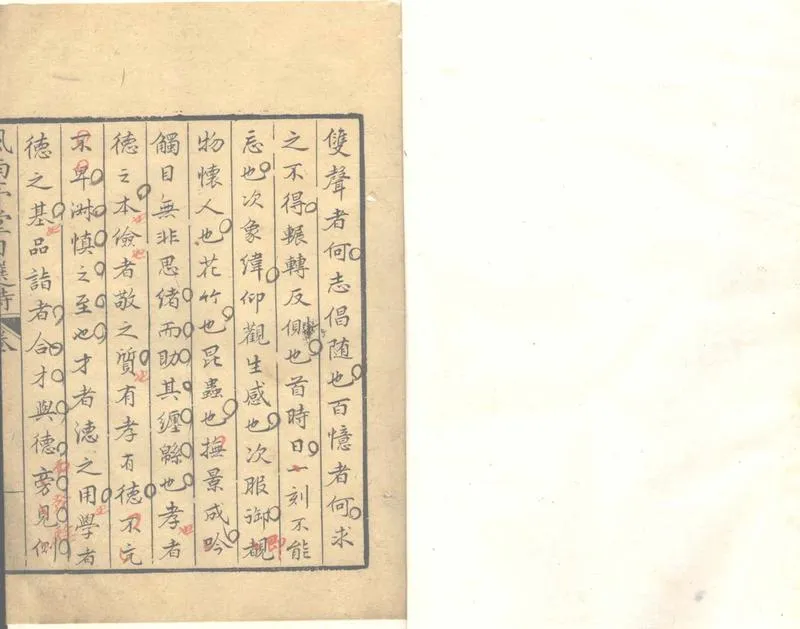 雙聲者何志倡随也百憶者何求
之不得輾轉反側也首時日一刻不能
忘也次象緯仰觀生感也次服御覩
物懷人也花竹也昆蟲也撫景成吟
觸目無非思緒而助其纏綿也孝者
德之本儉者敬之質有孝有德不亢
不卑淋慎之至也才者德之用學者
德之基品詣者合才與德旁見側